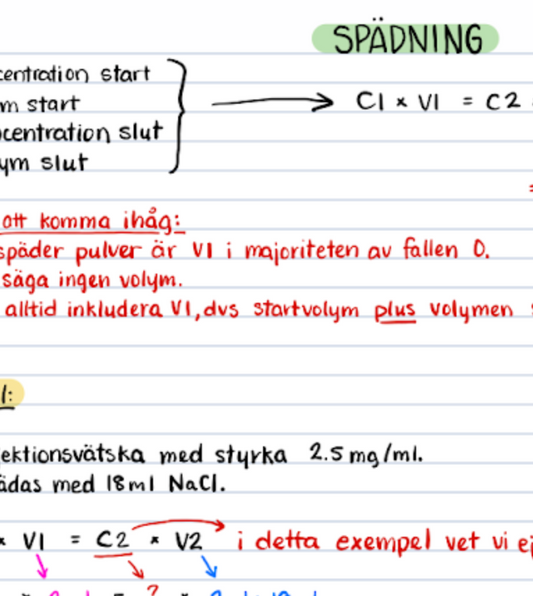 SPÄDNING
centration start
m start
C1 × V1 = C2
centration slut
ym slut
att komma ihåg:
späder pulver är V1 i majoriteten av fallen 0.
säga ingen volym.
alltid inkludera V1, dvs startvolym plus volymen
1:
ektionsvätska med styrka 2.5 mg/ml.
ädas med 18 ml NaCl.
× V1 = C2 × V2 i detta exempel vet vi ej